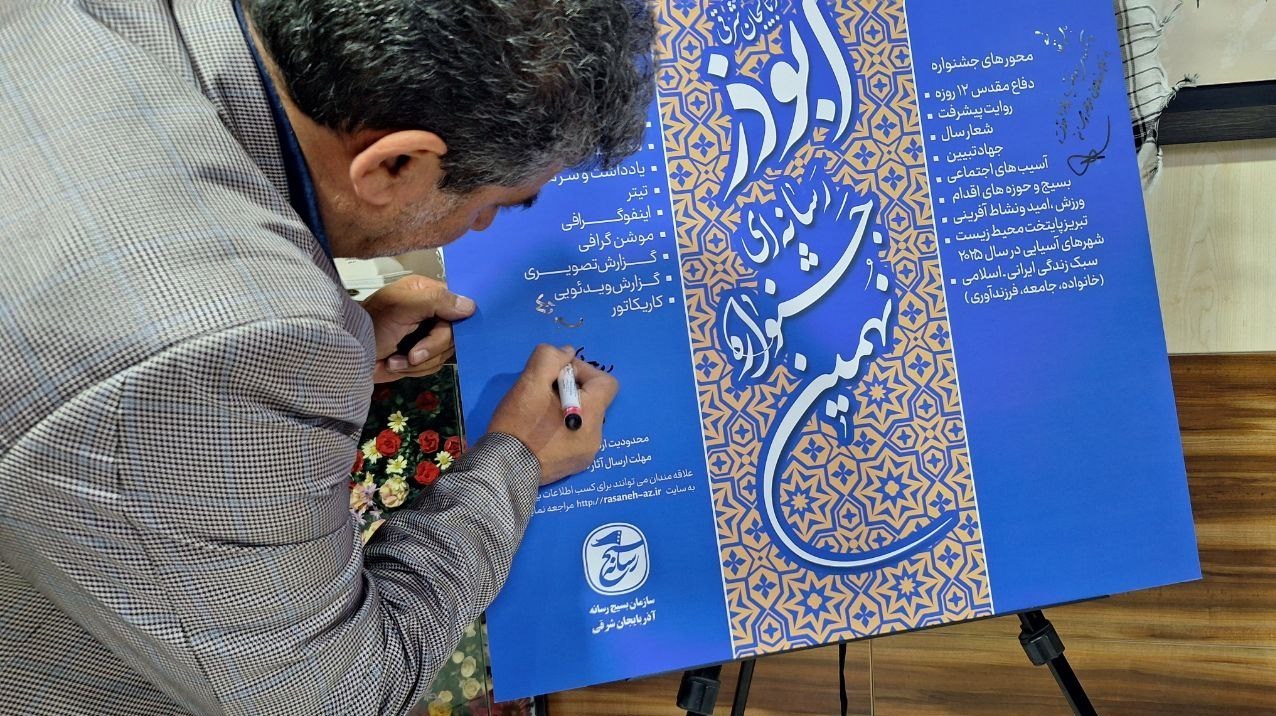 محورهای جشنواره
دفاع مقدس ۱۲ روزه
روایت پیشرفت
شعار سال
جهاد تبیین
آسیب‌های اجتماعی
بسیج و حوزه های اقدام
ورزش، امید و نشاط آفرینی
تبریز پایتخت محیط زیست
شهرهای آسیایی در سال ۲۰۲۵
سبک زندگی ایرانی ـ اسلامی
(خانواده، جامعه، فرزندآوری)
نهمین
جشنواره
رسانه ای
ابوذر
آذربایجان شرقی
یادداشت و
تیتر
اینفوگرافی
موشن گرافی
گزارش تصویری
گزارش ویدئویی
کاریکاتور
محدودیت
مهلت ارسال آثار
علاقه مندان می توانند برای کسب اطلاعات
به سایت http://rasaneh-az.ir مراجعه
سازمان بسیج رسانه
آذربایجان شرقی